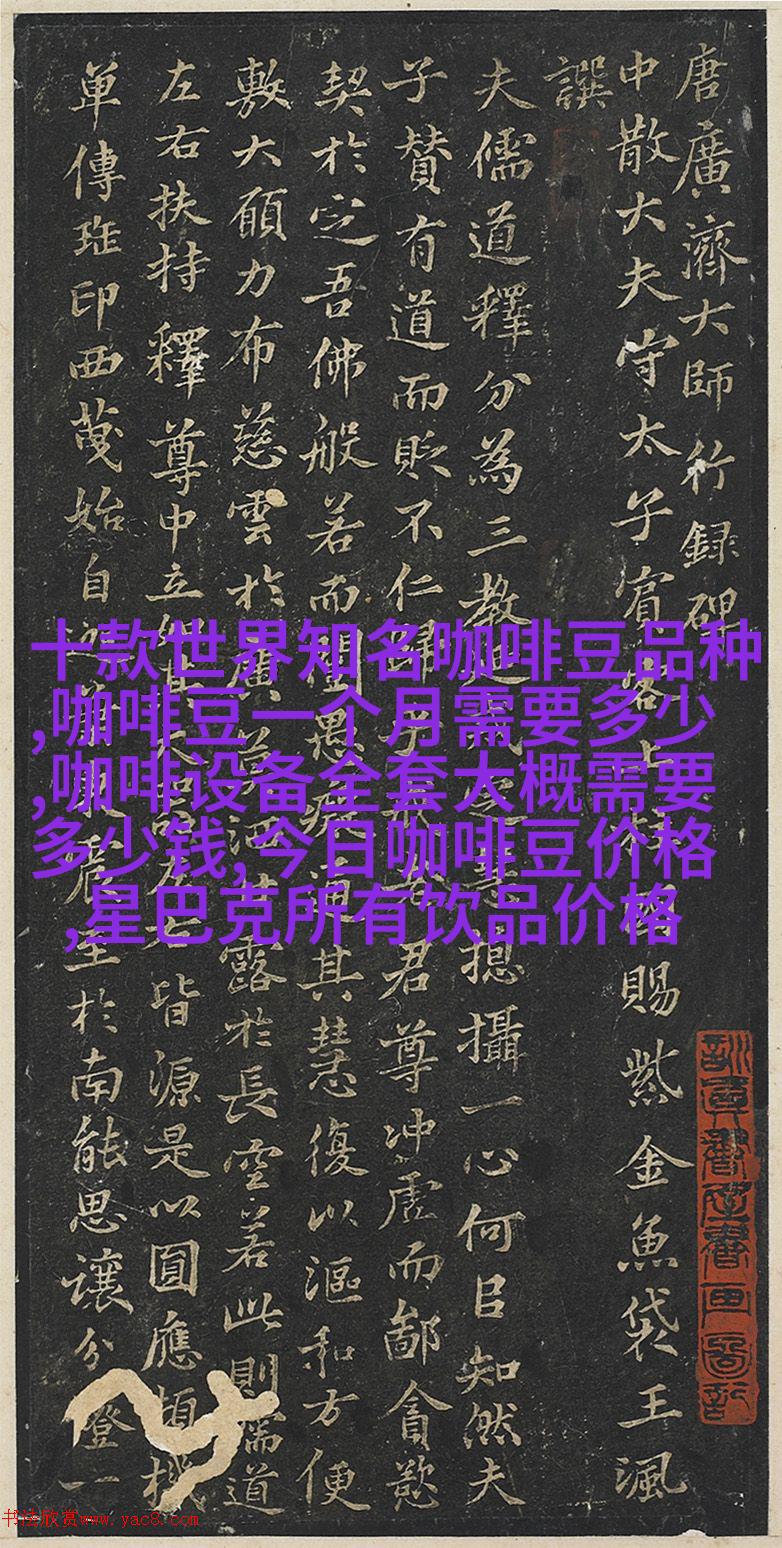 唐廣濟大師行録碑
中散大夫守太子賓客上賜紫金魚袋王渢
譔
夫儒道釋分為三教揔攝一心何㠯知然夫
子贊有道而貶不仁君尊冲虛而鄙貪慾
契於空吾佛般若而愚其慧復以漚和方便
敷大願力布慈雲於廣露於長空若此則儒道
左右扶持釋尊中立皆源是以圓應頓機
單傳班印西蔑始自至於南能思讓分燈一
十款世界知名咖啡豆品种
,咖啡豆一个月需要多少
,咖啡设备全套大概需要
多少钱,今日咖啡豆价格
,星巴克所有饮品价格
书法欣赏www.yac8.com